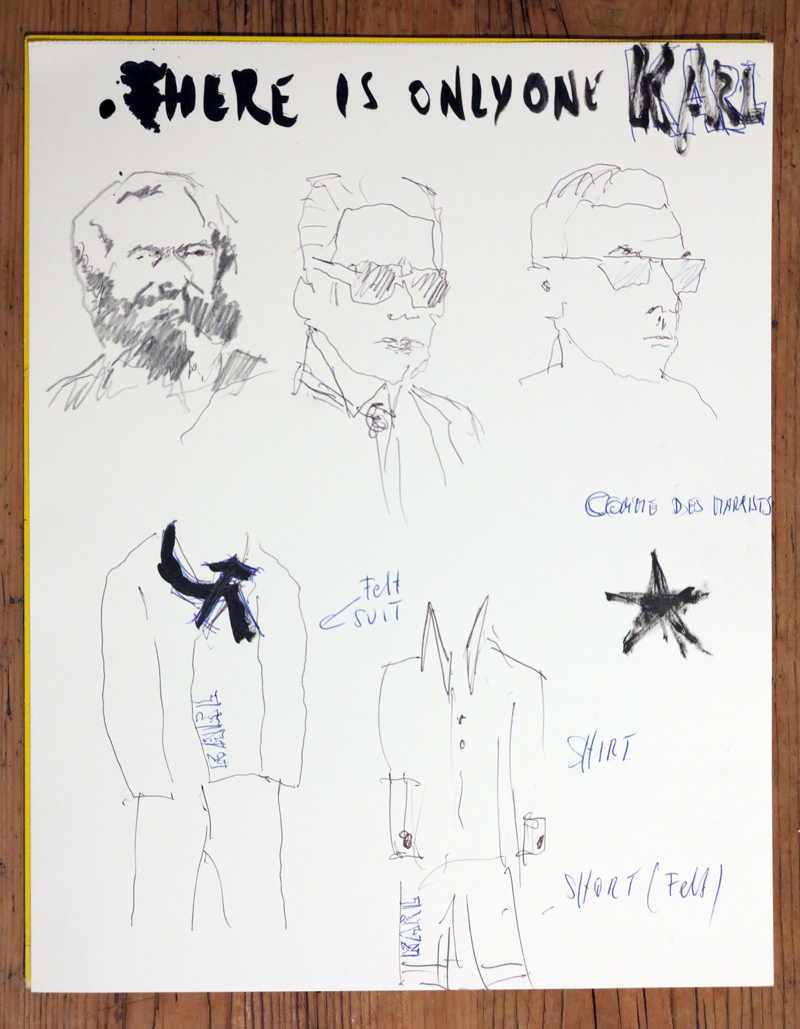 .THERE IS ONLY ONE KARL
COMME DES MARXISTS
Felt
SUIT
KARL
SHIRT
SHORT (Felt)
KARL